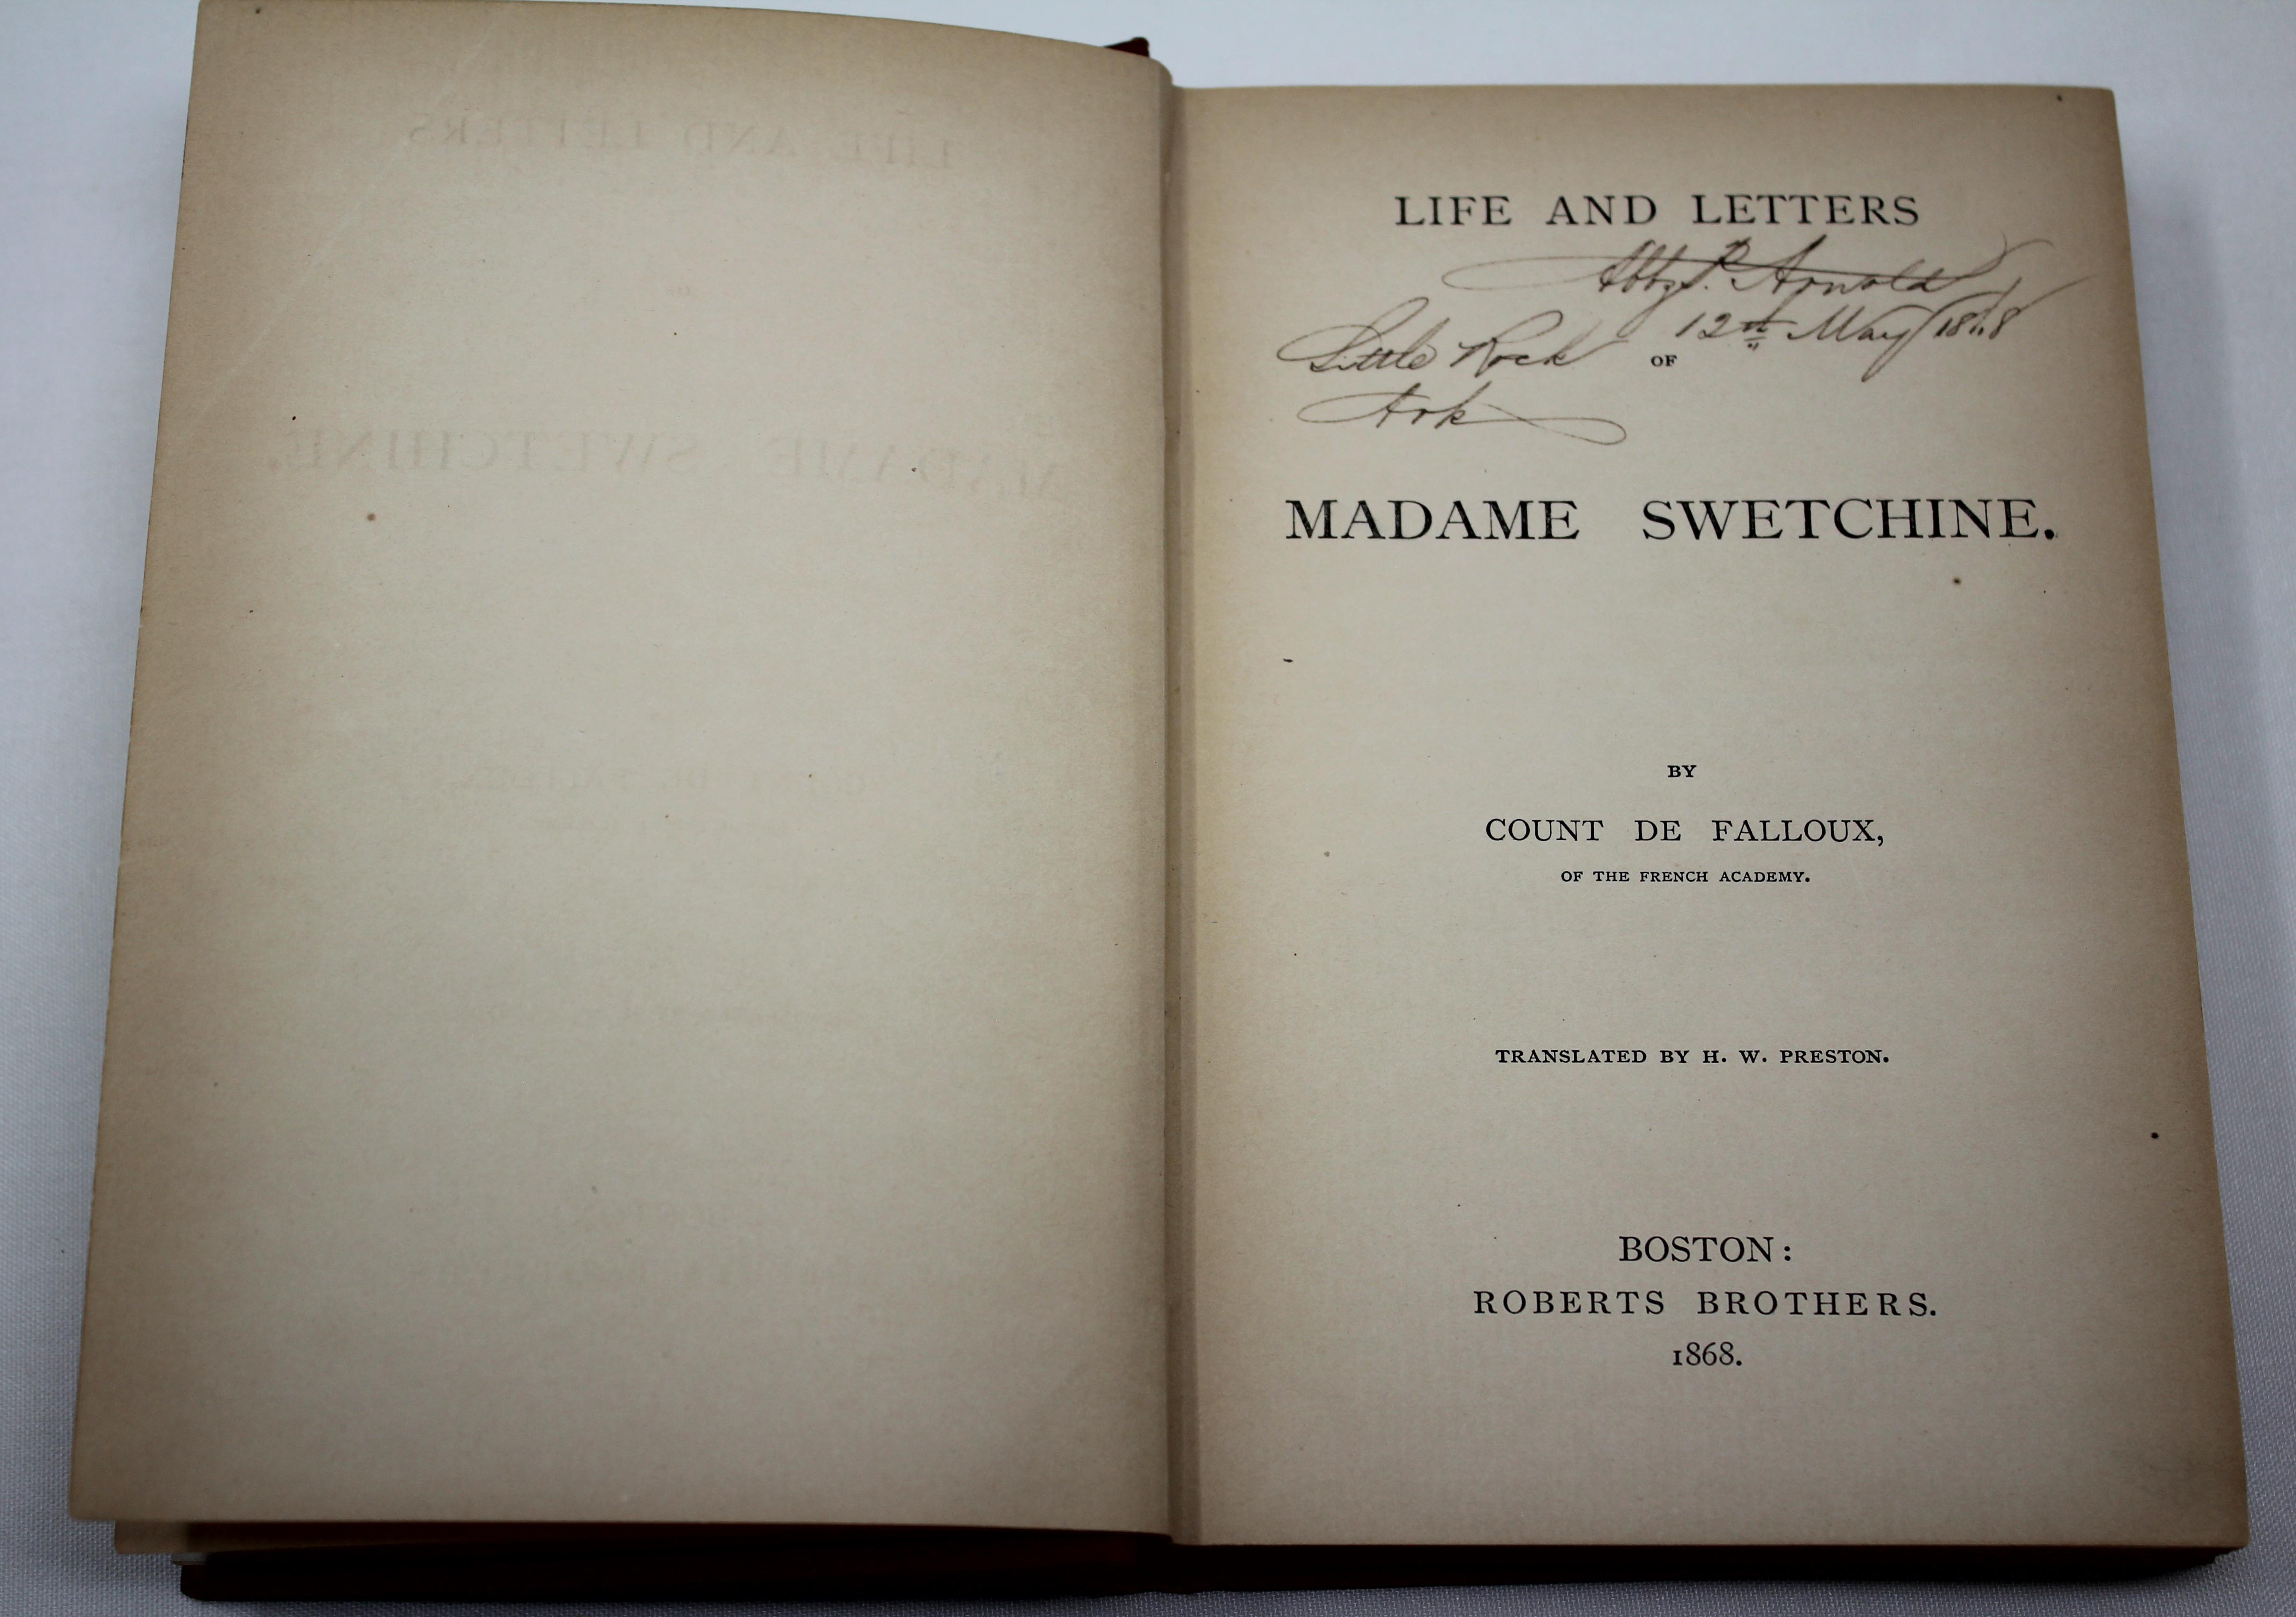 LIFE AND LETTERS
Abby P. Arnold
12th May 1868
Little Rock
OF
Ark
MADAME SWETCHINE.
BY
COUNT DE FALLOUX,
OF THE FRENCH ACADEMY.
TRANSLATED BY H. W. PRESTON.
BOSTON:
ROBERTS BROTHERS.
1868.